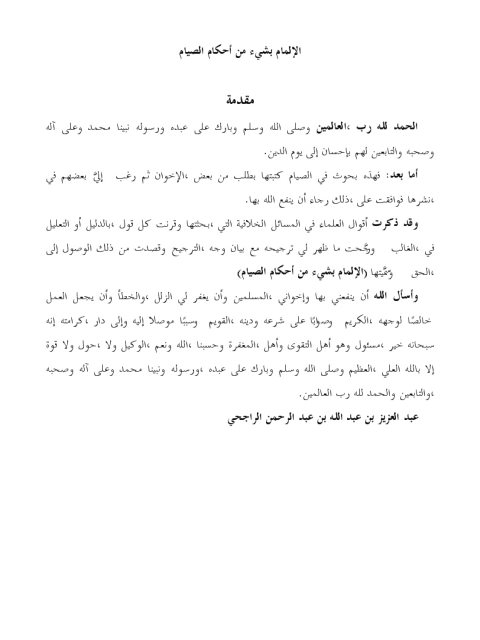 الإلمام بشيء من أحكام الصيام
مقدمة
الحمد لله رب ،العالمين وصلى الله وسلم وبارك على عبده ورسوله نبينا محمد وعلى آله
وصحبه والتابعين لهم بإحسان إلى يوم الدين.
أما بعد: فهذه بحوث في الصيام كتبتها بطلب من بعض ،الإخوان ثم رغب إليَّ بعضهم في
،نشرها فوافقت على ،ذلك رجاء أن ينفع الله بها.
وقد ذكرت أقوال العلماء في المسائل الخلافية التي ،بحثتها وقرنت كل قول ،بالدليل أو التعليل
في ،الغالب ورجَّحت ما ظهر لي ترجيحه مع بيان وجه ،الترجيح وقصدت من ذلك الوصول إلى
،الحق وسمَّيتها (الإلمام بشيء من أحكام الصيام)
وأسأل الله أن ينفعني بها وإخواني ،المسلمين وأن يغفر لي الزلل ،والخطأ وأن يجعل العمل
خالصًا لوجهه ،الكريم وصوابًا على شرعه ودينه ،القويم وسببًا موصلا إليه وإلى دار ،كرامته إنه
سبحانه خير ،مسئول وهو أهل التقوى وأهل ،المغفرة وحسبنا ،الله ونعم ،الوكيل ولا ،حول ولا قوة
إلا بالله العلي ،العظيم وصلى الله وسلم وبارك على عبده ،ورسوله ونبينا محمد وعلى آله وصحبه
،والتابعين والحمد لله رب العالمين.
عبد العزيز بن عبد الله بن عبد الرحمن الراجحي